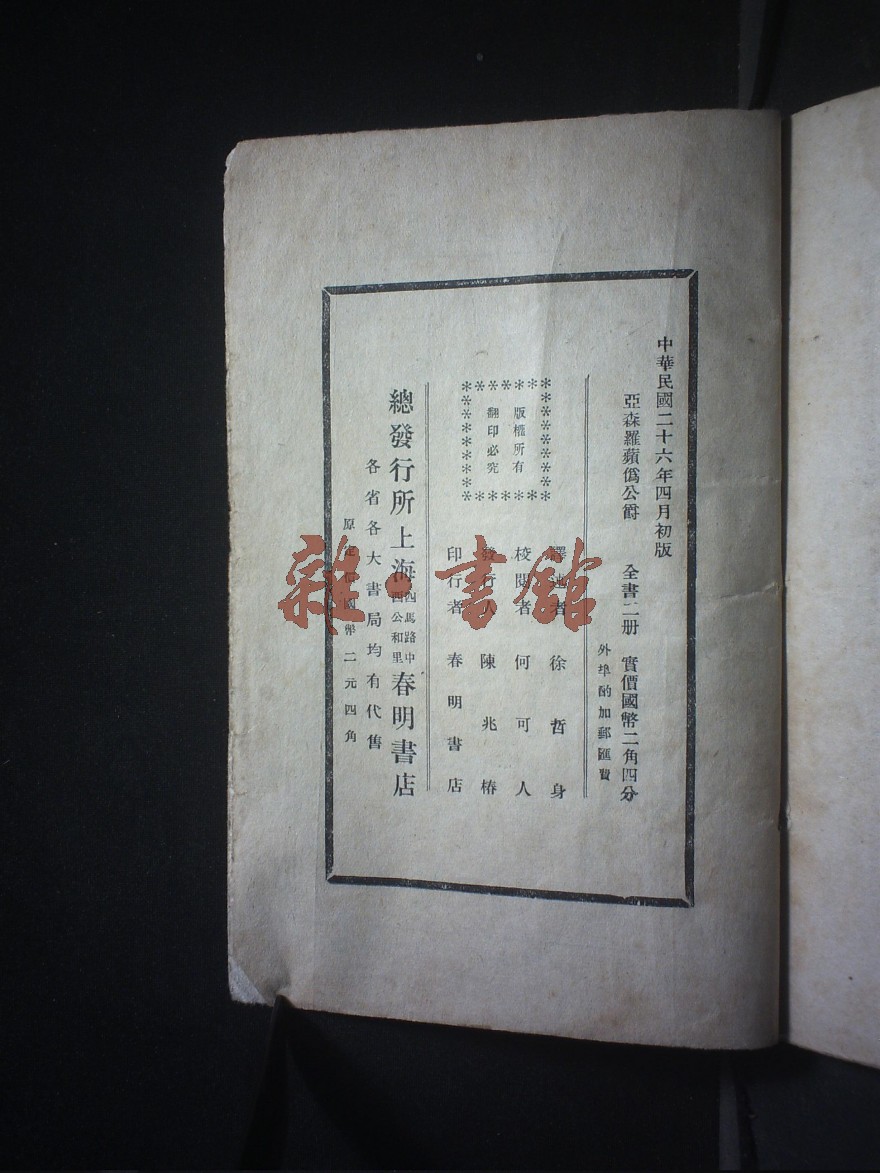 中華民國二十六年四月初版
亞森羅蘋僞公爵 全書二册 實價國幣二角四分
外埠酌加郵匯費
譯述者 徐哲身
校閱者 何可人
發行人 陳兆椿
印行者 春明書店
版權所有
翻印必究
總發行所上海四馬路中西公和里春明書店
各省各大書局均有代售
原定價國幣二元四角
雜·書館